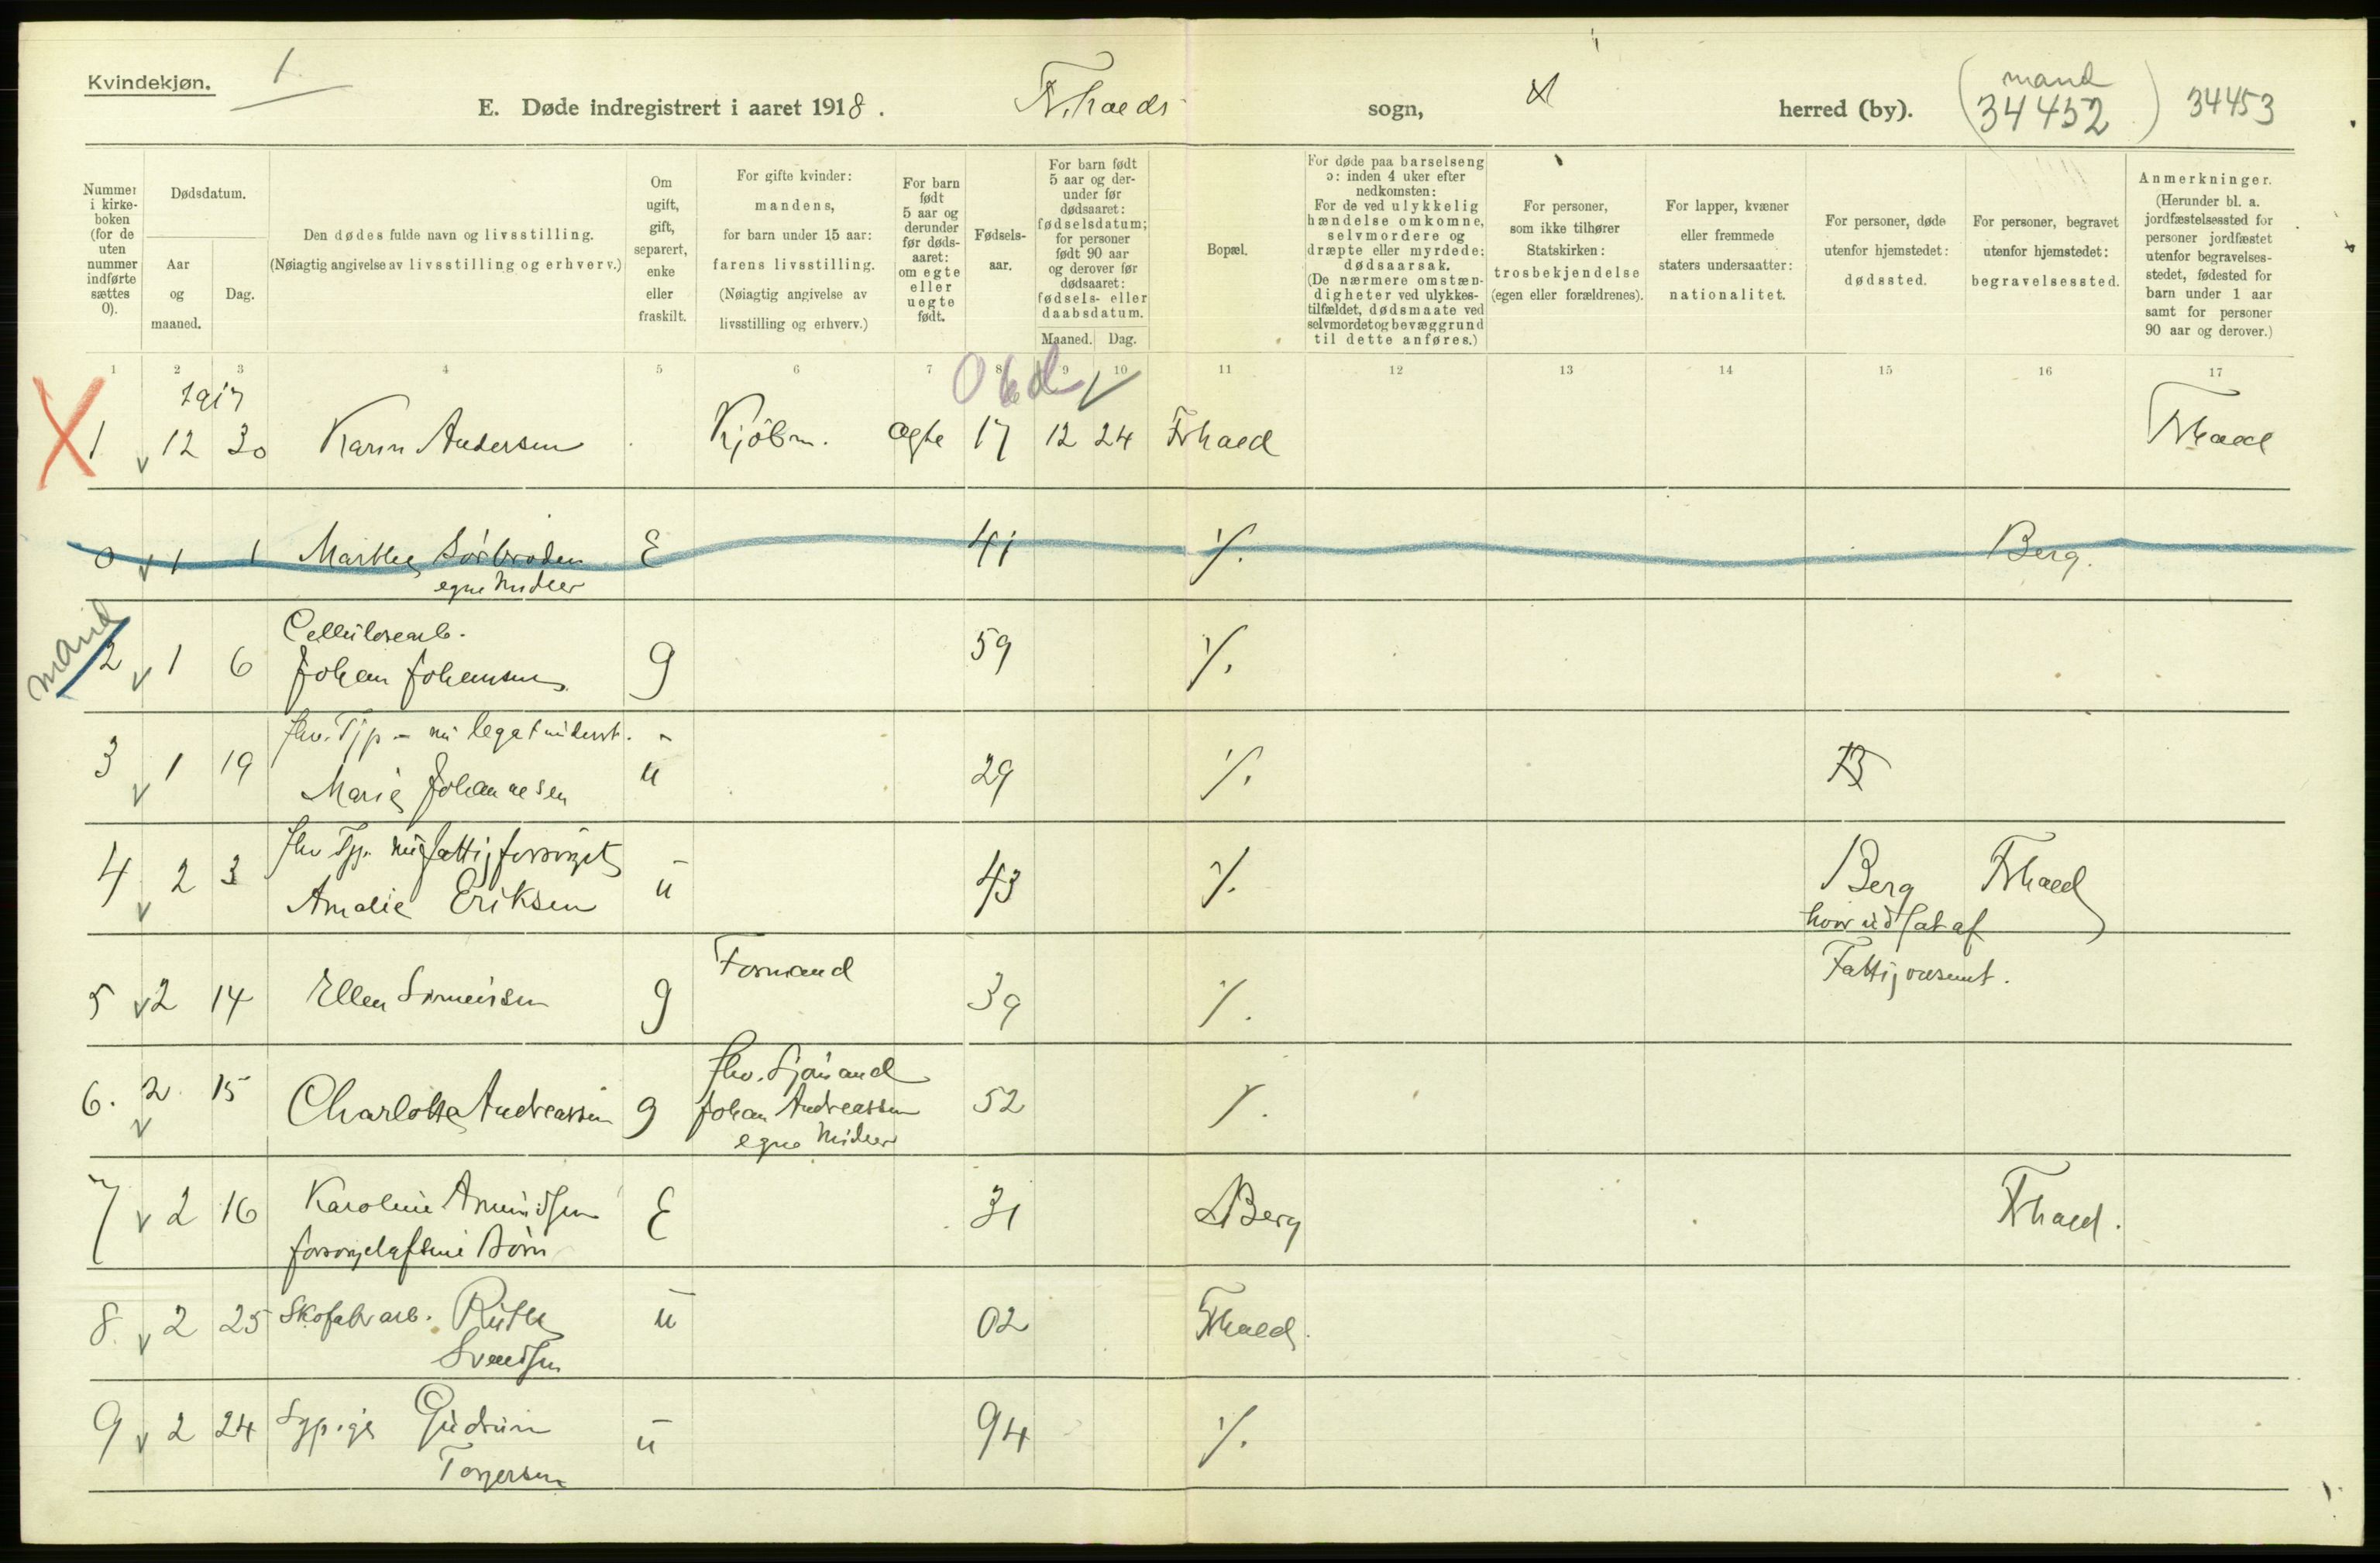 Kvindekjøn.
1
E. Døde indregistrert i aaret 1918.
Frhalds sogn,
herred (by).
(mand 34452) 34453
Nummer i kirke- boken (for de uten nummer indførte sættes 0).
Dødsdatum.
Aar og maaned.
Dag.
Den dødes fulde navn og livsstilling.
(Nøiagtig angivelse av livsstilling og erhverv.)
Om ugift, gift, separert, enke eller fraskilt.
For gifte kvinder: mandens, for barn under 15 aar: farens livsstilling.
(Nøiagtig angivelse av livsstilling og erhverv.)
For barn født 5 aar og derunder før døds- aaret: om egte eller uegte født.
Fødsels- aar.
For barn født 5 aar og der- under før dødsaaret: fødselsdatum; for personer født 90 aar og derover før dødsaaret: fødsels- eller daabsdatum.
Maaned. Dag.
Bopæl.
For døde paa barselseng ɔ: inden 4 uker efter nedkomsten:
For de ved ulykkelig hændelse omkomne, selvmordere og dræpte eller myrdede: dødsaarsak.
(De nærmere omstæn- digheter ved ulykkes- tilfældet, dødsmaate ved selvmordet og bevæggrund til dette anføres.)
For personer, som ikke tilhører Statskirken: trosbekjendelse (egen eller forældrenes).
For lapper, kvæner eller fremmede staters undersaatter: nationalitet.
For personer, døde utenfor hjemstedet: dødssted.
For personer, begravet utenfor hjemstedet: begravelsessted.
Anmerkninger.
(Herunder bl. a. jordfæstelsessted for personer jordfæstet utenfor begravelses- stedet, fødested for barn under 1 aar samt for personer 90 aar og derover.)
1 2 3 4 5 6 7 8 9 10 11 12 13 14 15 16 17
1917
1 12 30 Karin Andersen Kjöbm. Ægte 17 12 24 Frhald Frhald
0 1 1 Marthe Sörbröden E 41 %. Berg.
egne Midler
mand
Cellulosearb.
2 1 6 Johan Johansen g 59 %.
fhv. Tjp. - nu legatunderst.
3 1 19 Marie Johannesen u 29 %.
fhv Tjp. nu fattigforsörget
4 2 3 Amalie Eriksen u 43 %. Berg Frhald
hvor udsat af
Fattigvæsenet.
Formand
5 2 14 Ellen Simensen g 39 %.
fhv. Sjömand
6. 2 15 Charlotte Andreassen g Johan Andreassen 52 %.
egne Midler
7 2 16 Karoline Amundsen E 31 Berg Frhald.
forsörgelse af sine Börn
8. 2 25 Skofabr arb. Ruth u 02 Frhald.
Svendsen
9 2 24 Sypige Gudrun u 94 %.
Torgersen